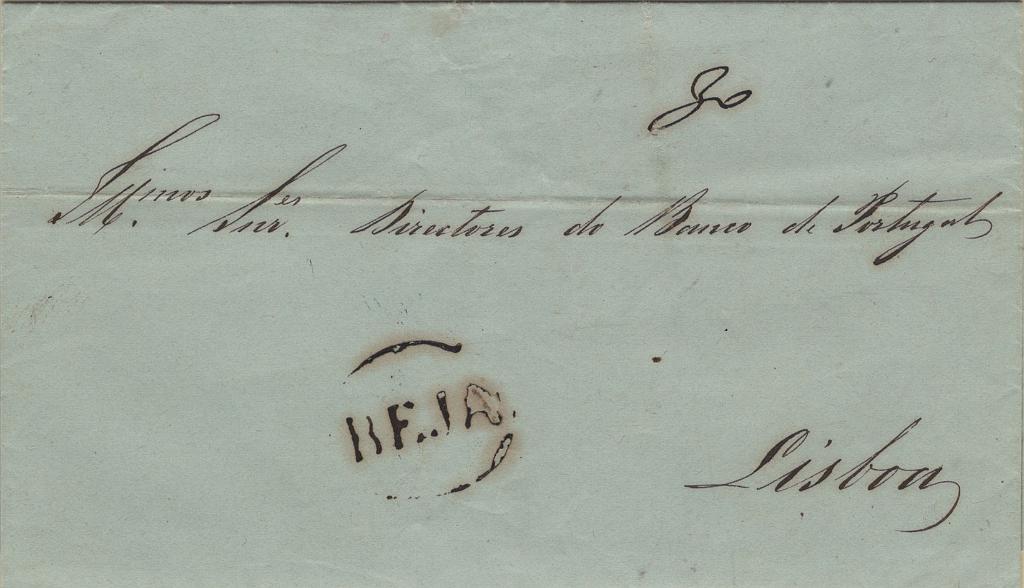 30
Ill.mos Snr.es Directores do Banco de Portugal
BEJA
Lisboa